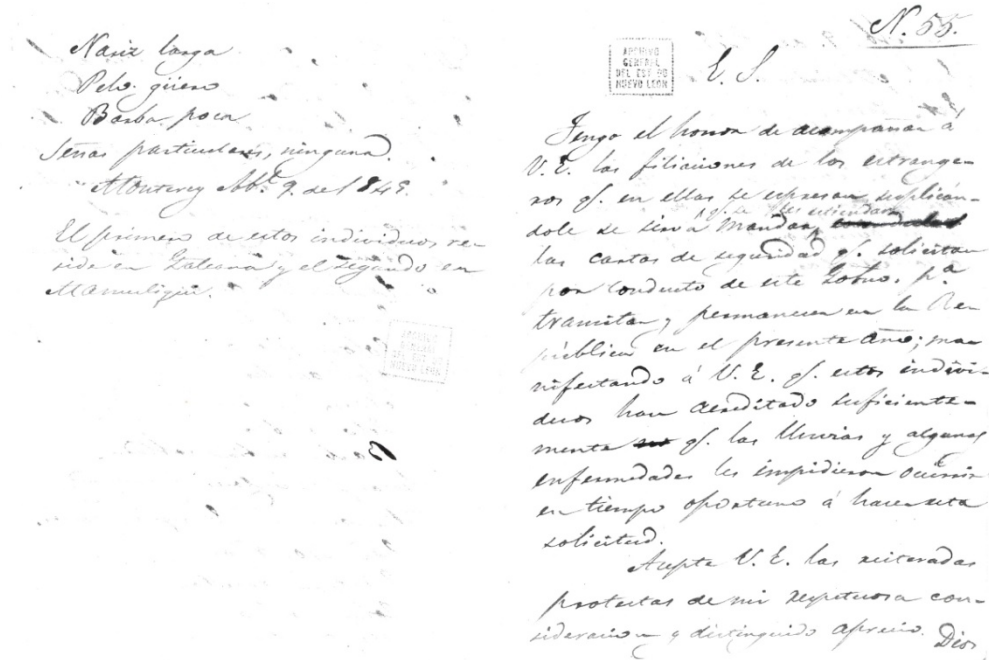 Nariz larga
Pelo güero
Barba poca
Señas particulares, ninguna.
Monterey Ab.l 9 de 1849.
El primero de estos individuos re-
side en Galeana y el segundo en
Mamulique.
ARCHIVO
GENERAL
DEL EST DO
NUEVO LEON
N. 55.
ARCHIVO
GENERAL
DEL EST DO
NUEVO LEON
E. S.
Tengo el honor de acompañar á
V. E. las filiaciones de los estrange-
ros q. en ellas se espresan, suplicán-
dole se sirva mandar q. se les estiendan
las cartas de seguridad q. solicitan
por conducto de este Gobno. pa.
transitar, y permanecer en la Re
pública en el presente año; ma
nifestando á V. E. q. estos indivi-
duos han acreditado suficiente-
mente q. las lluvias y algunas
enfermedades les impidieron ocurrir
en tiempo oportuno á hacer esta
solicitud.
Acepte V. E. las reiteradas
protestas de mi respetuosa con-
sideracion y distinguido aprecio.
Dios